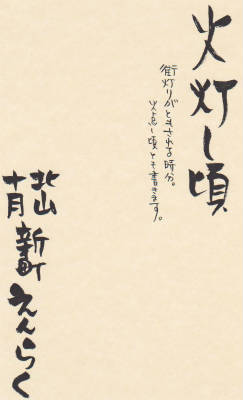 火灯し頃
街灯りがともされる時分。
火点し頃とも書きます。
北山 新町 えんらく
十月